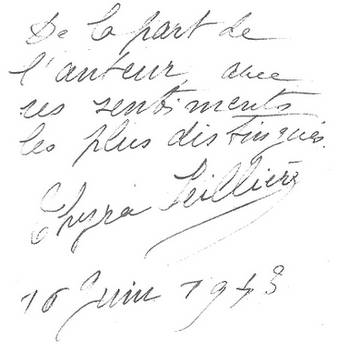 De la part de
l'auteur, avec
ses sentiments
les plus distingués.
Seillière
16 Juin 1943